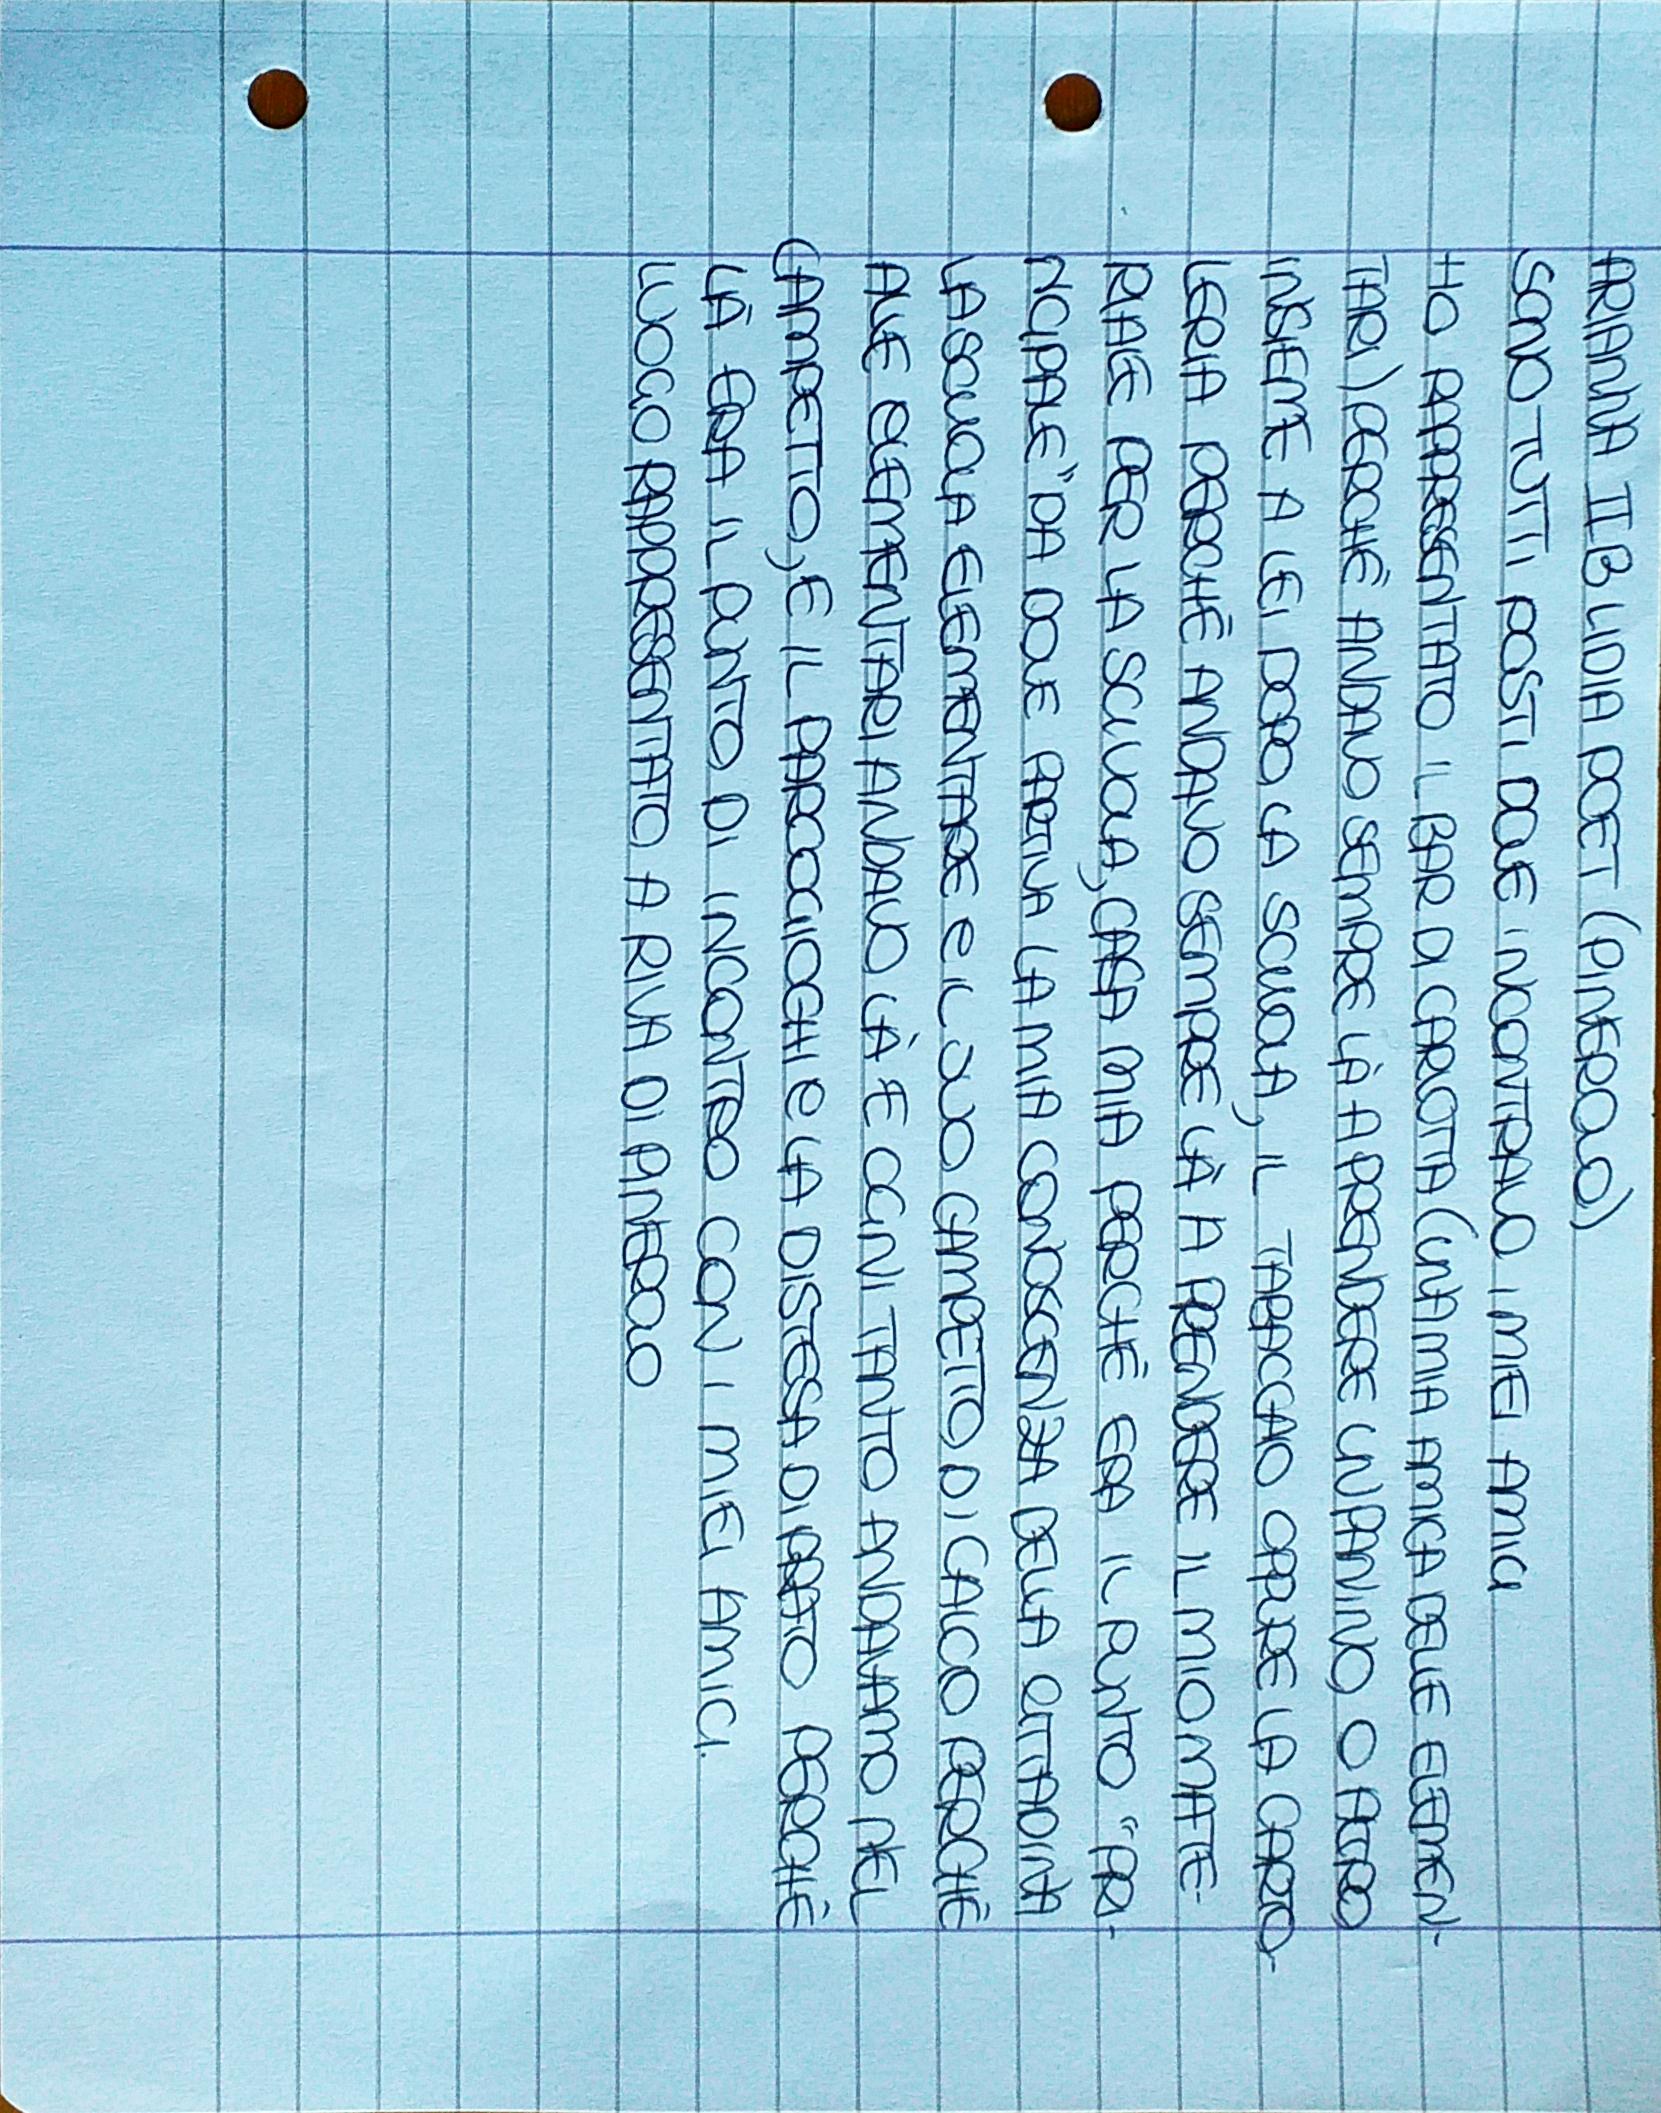 ARIANNA II B LIDIA POET (PINEROLO)
SONO TUTTI POSTI DOVE INCONTRAVO I MIEI AMICI
HO RAPPRESENTATO IL BAR DI CARLOTTA (UNA MIA AMICA DELLE ELEMEN-
TARI) PERCHÉ ANDAVO SEMPRE LÀ A PRENDERE UN PANINO O ALTRO
INSIEME A LEI DOPO LA SCUOLA, IL TABACCAIO OPPURE LA CARTO-
LERIA PERCHÉ ANDAVO SEMPRE LÀ A PRENDERE IL MIO MATE-
RIALE PER LA SCUOLA, CASA MIA PERCHÉ ERA IL PUNTO "PRI-
NCIPALE" DA DOVE PARTIVA LA MIA CONOSCENZA DELLA CITTADINA
LA SCUOLA ELEMENTARE E IL SUO CAMPETTO DI CALCIO PERCHÉ
ALLE ELEMENTARI ANDAVO LÀ E OGNI TANTO ANDAVAMO NEL
CAMPETTO, E IL PARCOGIOCHI E LA DISTESA DI PRATO PERCHÉ
LÀ ERA IL PUNTO DI INCONTRO CON I MIEI AMICI.
LUOGO RAPPRESENTATO A RIVA DI PINEROLO